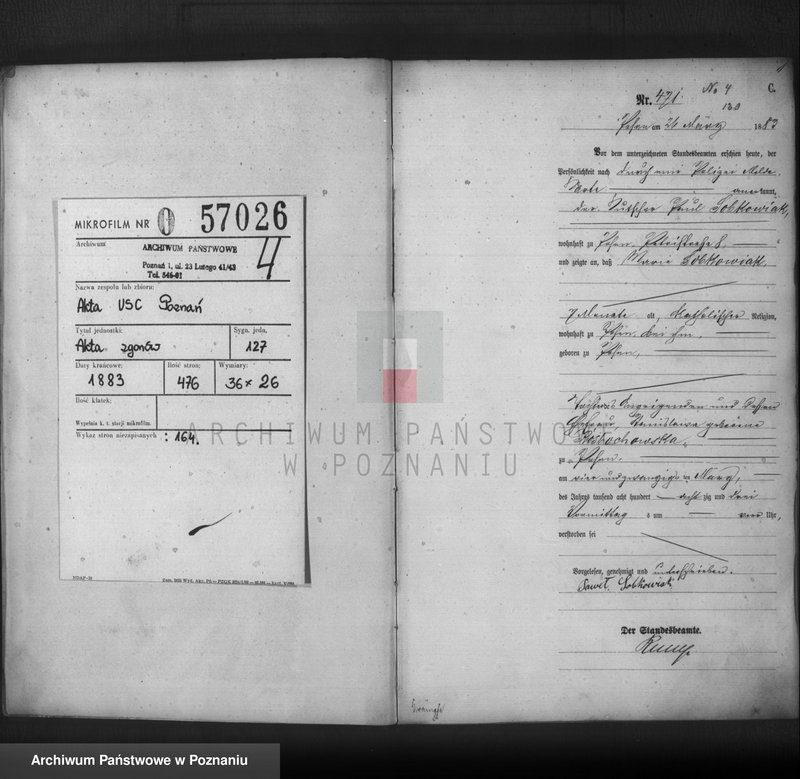 MIKROFILM NR 0 57026
Archiwum
ARCHIWUM PAŃSTWOWE
Poznań 1, ul. 23 Lutego 41/43
Tel. 546-01
4
Nazwa zespołu lub zbioru:
Akta USC Poznań
Tytuł jednostki:
Akta zgonów
Sygn. jedn.
127
Daty krańcowe:
1883
Ilość stron:
476
Wymiary:
36 x 26
Ilość klatek:
Wypełnia k. t. stacji mikrofilm.
Wykaz stron niezapisanych : 164.
C.
No 4
Nr. 471
130
Posen am 24 März 1883
Vor dem unterzeichneten Standesbeamten erschien heute, der
Persönlichkeit nach durch eine Polizei Melde
Karte anerkannt,
der Kutscher Paul Sobkowiak,
wohnhaft zu Posen, Petristraße 8,
und zeigte an, daß Marie Sobkowiak,
7 Monate alt, katholischer Religion,
wohnhaft zu Posen, bei ihm,
geboren zu Posen,
Tochter des Anzeigenden und dessen
Ehefrau, Stanislawa geborene
zu Posen
am vier und zwanzigsten März,
des Jahres tausend acht hundert achtzig und drei
Vormittags um vier Uhr,
verstorben sei
Vorgelesen, genehmigt und unterschrieben.
Paweł Sobkowiak
Der Standesbeamte.
ARCHIWUM PAŃSTWOWE
W POZNANIU
Archiwum Państwowe w Poznaniu